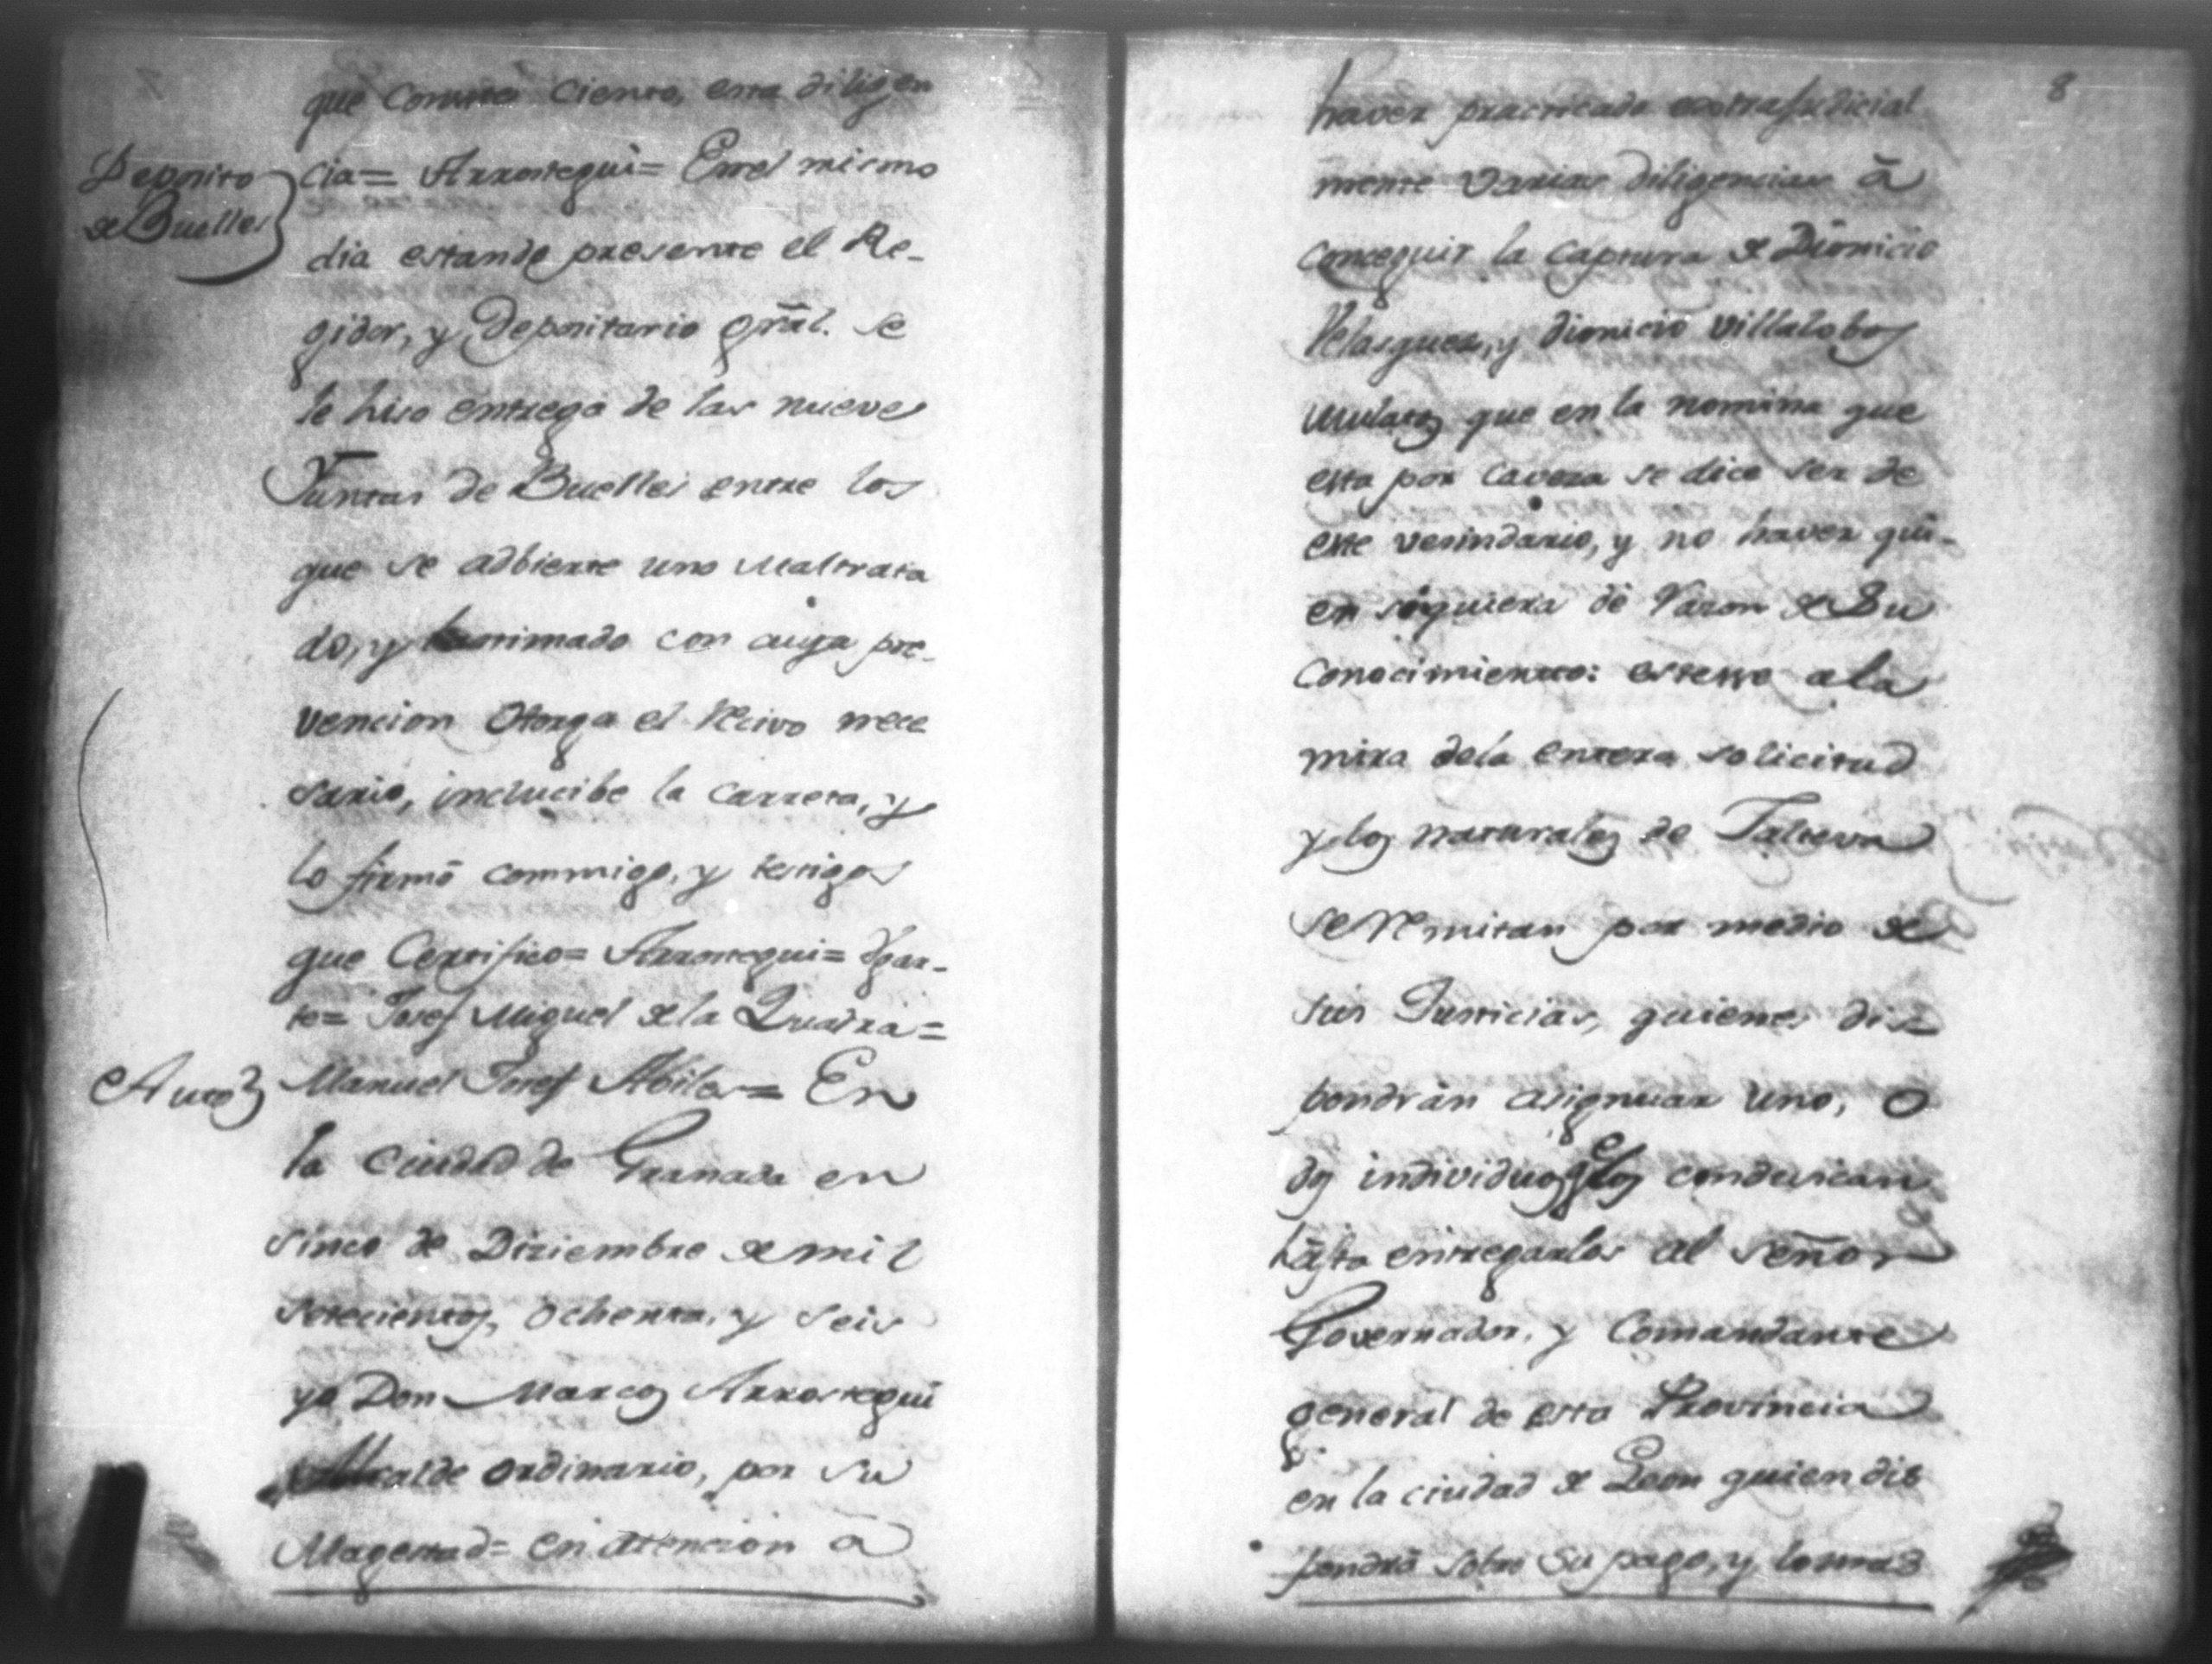 que Conste siento, esta diligen
Deposito
de Buelles
cia= Arrostegui= En el mismo
dia estando presente el Re-
gidor, y Depositario gral. se
le hiso entrega de las nueve
Juntas de Buelles entre los
que se adbierte uno Maltrata
do, y lastimado con cuya pre-
vencion Otorga el Recivo nece
sario, inclucibe la Carreta, y
lo firmó commigo, y testigos
que Certifico= Arrostegui= Ugar-
te= Josef Miguel de la Quadra=
Auto
Manuel Josef Abiles= En
la Ciudad de Granada en
Sinco de Diziembre de mil
setecientos, ochenta, y seis
yo Don Marcos Arrostegui
Alcalde ordinario, por su
Magestad= en atencion â
8
haver practicado extrajudicial
mente varias diligencias â
conseguir la Captura de Dionicio
Velasquez, y dionicio Villalobos
mulatos que en la nomina que
esta por Caveza se dice ser de
este vesindario, y no haver qui-
en siquiera dé Razon de Su
Conocimiento: estese a la
mira dela entera solicitud
y los naturales de Jalteva
se Remitan por medio de
sus Justicias, quienes dis-
pondrán asignar uno, o
dos individuos q.e los conduscan
hasta entregarlos al Señor
Governador, y Comandante
general de esta Provincia
en la ciudad de Leon quien dis
pondrá sobre Su pago, y lo mas